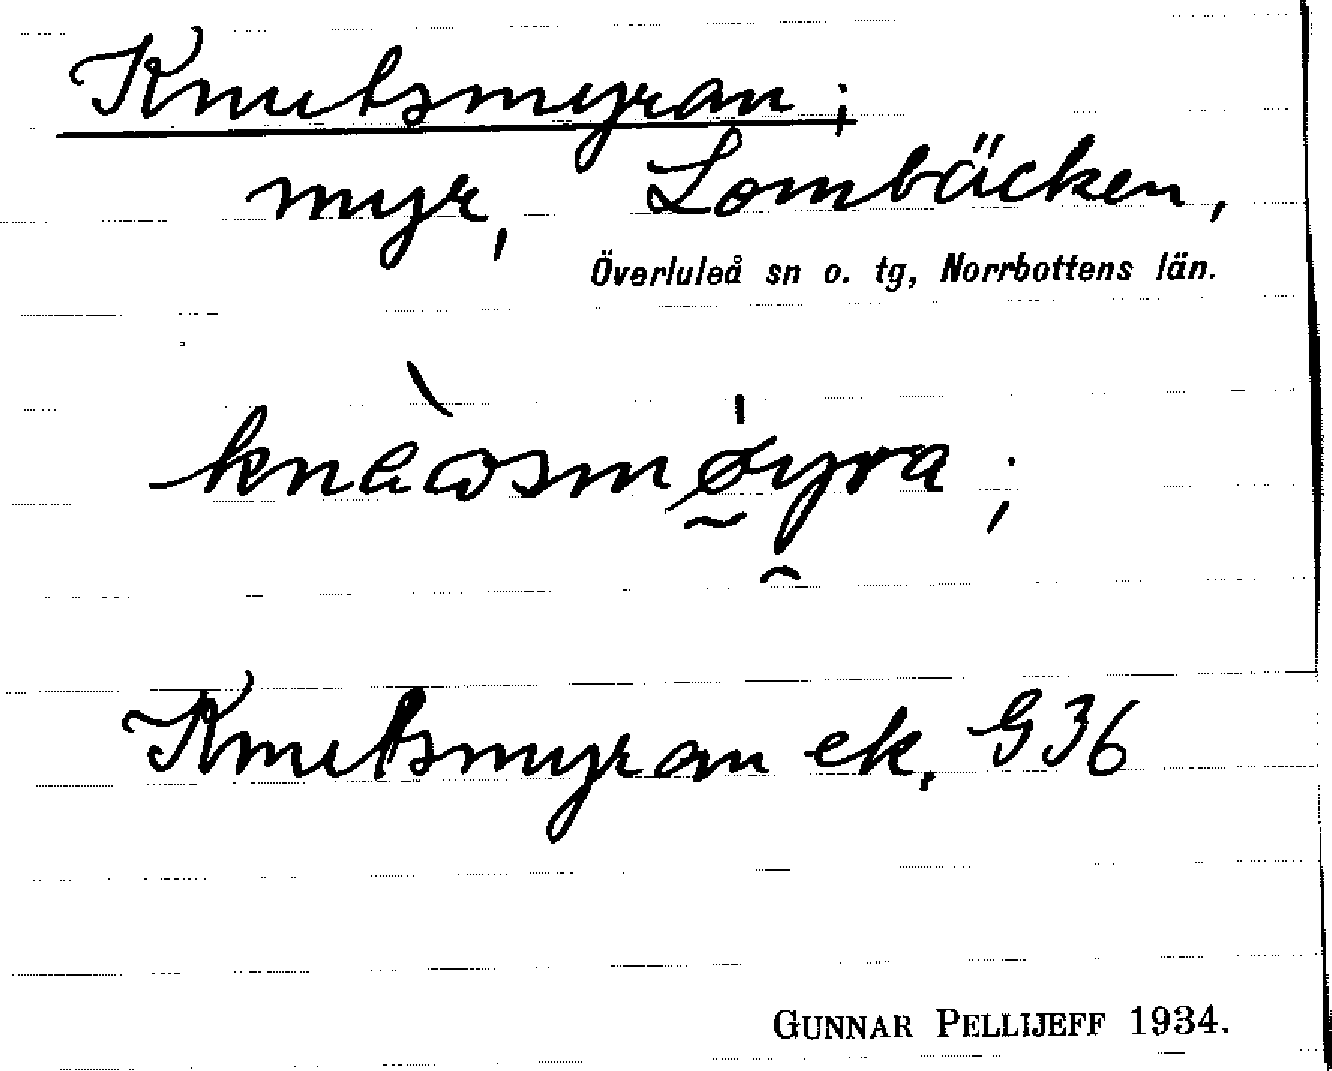 Knutsmyran;
myr, Lombäcken,
Överluleå sn o. tg, Norrbottens län.
knèɷsmøyra;
Knutsmyran ek. G36
GUNNAR PELLIJEFF 1934.